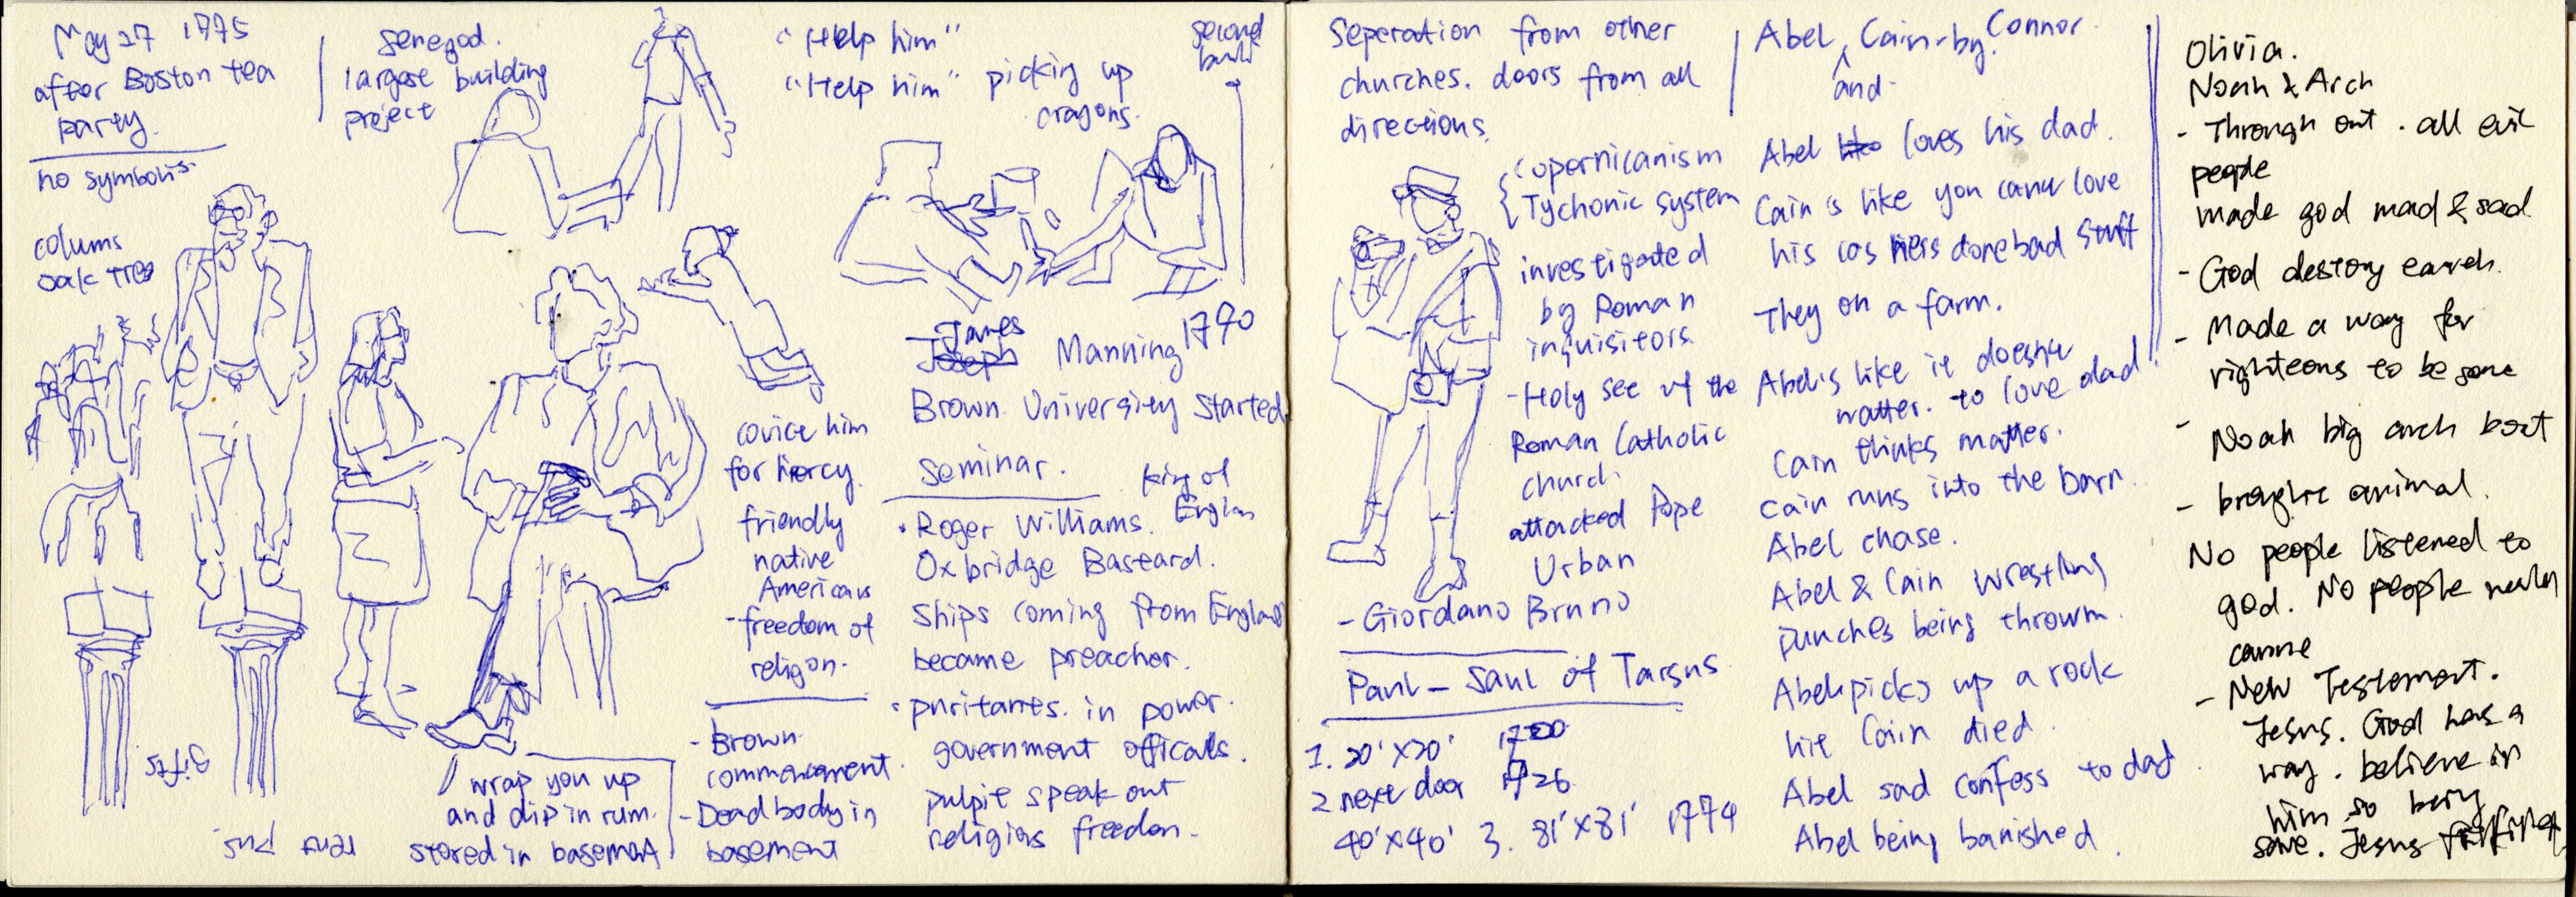 May 27 1775
after Boston tea
party.
no symbolis-
colums
oak tree
largest building
project
"Help him"
"Help him" picking up
crayons.
second
build
James
Joseph Manning 1790
Brown University started
Seminar.
king of
• Roger Williams.
Oxbridge Bastard.
ships coming from England
became preacher.
• puritants. in power.
government officals.
pulpit speak out
religins freedon-
him
for Mercy.
friendly
native
Americans
- freedom of
religon.
- Brown
commencement.
- Dead body in
basement
wrap you up
and dip in rum.
stored in basement
gifts
Seperation from other
churches. doors from all
directions.
Copernicanism
Tychonic system
investigated
by Roman
inquisitors
- Holy see of the
Roman Catholic
church.
attacked Pope
Urban
- Giordano Bruno
Paul - Saul of Tarsus
1. 20'x20' 1700
2 next door 1726
40'x40' 3. 81'x81' 1774
Abel, and Cain - by Connor.
Abel like loves his dad.
Cain's like you can't love
his cos he's done bad stuff
They on a farm.
Abel's like it doesn't
matter. to love dad!
Cain thinks matter.
Cain runs into the barn.
Abel chase.
Abel & Cain wrestling
punches being throwm.
Abel picks up a rock
hit Cain died.
Abel sad confess to dad.
Abel being banished.
Olivia.
Noah & Arch
- Through out. all evil
people
made god mad & sad
- God destory earth.
- Made a way for
righteons to be
- Noah big arch boat
- brought animal.
No people listened to
god. No people really
came
- New Testement.
Jesus. God has a
way. believe in
him so being
save. Jesus